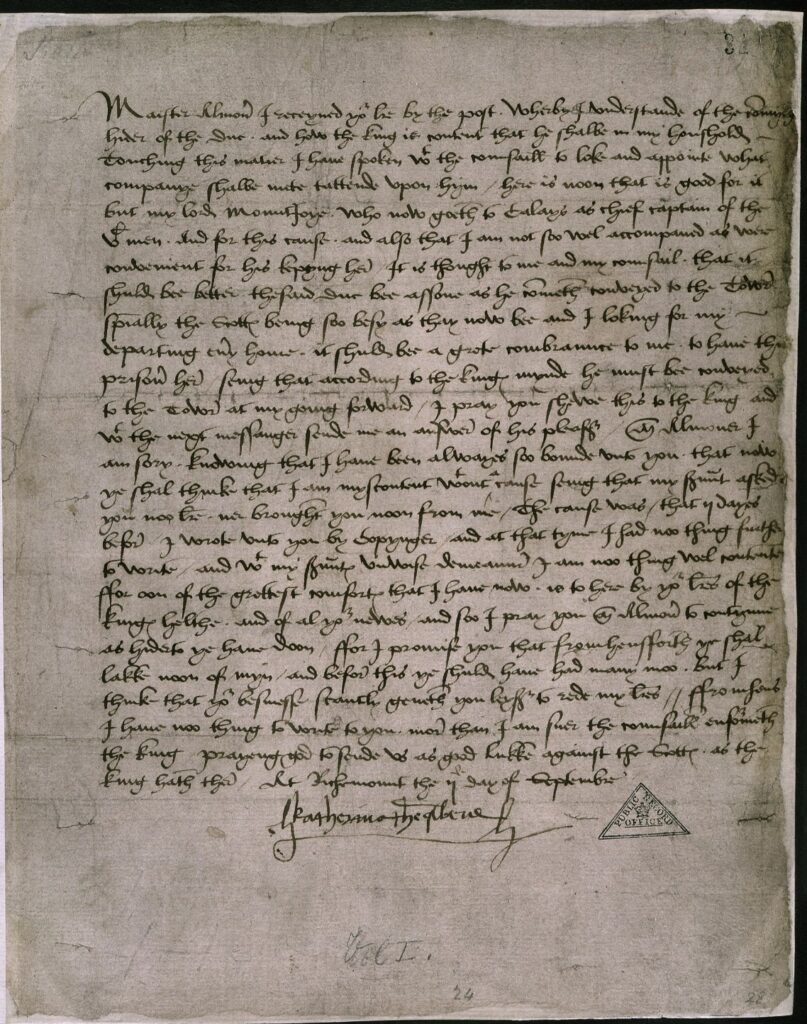 31
Maister Almoner I receyved yor lre by the post. Wherby I understande of the comyng
hider of the Duc. and how the king is content that he shalbe in my houshold
Touching this matier I have spoken wt the counsaill to loke and appointe what
companye shalbe mete tattende upon hym / here is noon that is good for it
but my lord Mountjoye. who now goeth to Calays as chief captain of the
vC men. And for this cause. and also that I am not soo wel accompanied as were
convenient for his keping her. It is thought to me and my counsail. that it
shuld bee better thesaid Duc bee assone as he cometh conveyed to the Towr
spially the Scotts being soo besy as thay now bee and I loking for my
departing every houre. it shuld bee a grete combraunce to me. to have this
prisoner her. seing that according to the kings mynde he must bee conveyed
to the Towr at my going forward / I pray you shewe this to the king and
wt the next messanger sende me an answer of his pleasr / Almoner I
am sory. knowing that I have been alwayes soo bounde unto you. that now
ye shal thinke that I am myscontent wtout a cause seing that my servnt asked
you noo lre. ner brought you noon from me / The cause was / that ij dayes
befor. I wrote unto you by Copynger. and at that tyme I had noo thing further
to write / and wt my servnts unwise demeanour I am noo thing wel contente
ffor oon of the grettest comforts that I have now. is to here by yor lres of the
kings helthe. and of al yor newes. and soo I pray you Almoner to contynue
as hiderto ye have doon / ffor I promise you that fromhensforth ye shal
lakke noon of myn / and befor this ye shuld have had many moo. But I
think that yor besynesse scantly geveth you leyser to rede my lres // ffromhens
I have noo thing to write to you. more than I am suer the counsaill enformeth
the king. prayeng god to sende us as good lukke against the Scotts. as the
king hath ther. At Richemount the ij day of Septembre
Katherina the Qwene
PUBLIC RECORD OFFICE
Vol I.
24
28